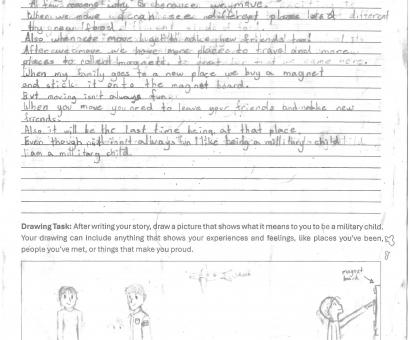 A few reasons why is because we move.
When we move we can see different places lots of different
thing new foods!
Also when we move I get to make new friends too!
After we move we have more places to travel and more
places to collect magnets.
When my family goes to a new place we buy a magnet
and stick it onto the magnet board.
But moving isn't always fun.
When you move you need to leave your friends and make new
friends.
Also it will be the last time being at that place.
Even though it isn't always fun I like being a military child
I am a military child.
Drawing Task: After writing your story, draw a picture that shows what it means to you to be a military child.
Your drawing can include anything that shows your experiences and feelings, like places you've been,
people you've met, or things that make you proud.
magnet
board